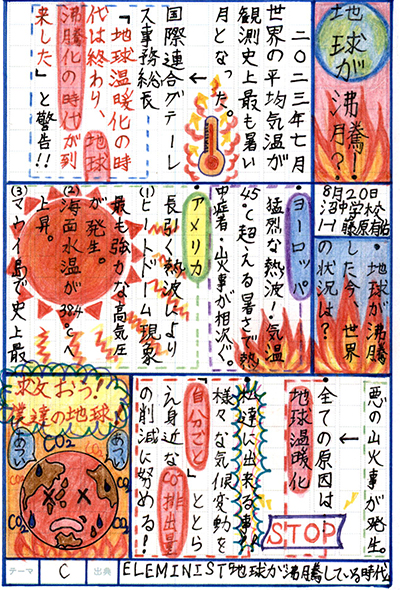 地球が
沸騰！？
二〇二三年七月
世界の平均気温が
観測史上最も暑い
月となった。
国際連合グテーレ
ス事務総長
『地球温暖化の時
代は終わり、地球
沸騰化の時代が到
来した』と警告!!
8月20日
沼中学校
1-1 藤原有佑
地球が沸騰
した今、世界
の状況は？
・ヨーロッパ
猛烈な熱波！気温
45℃超える暑さで熱
中症者・山火事が相次ぐ。
・アメリカ
長引く熱波により
(1)ヒートドーム現象
最も強力な高気圧
が発生。
(2)海面水温が38.4℃へ
上昇。
(3)マウイ島で史上最
悪の山火事が発生。
全ての原因は…
地球温暖化
STOP
私達に出来る事!!
様々な気候変動を
『自分ごと』ととら
え身近なCO₂排出量
の削減に努める！
救おう！
僕達の地球！
あつい
CO2
あつい
CO2
CO2
CO2
CO2
テーマ C 出典 ELEMINIST『地球が沸騰している時代』